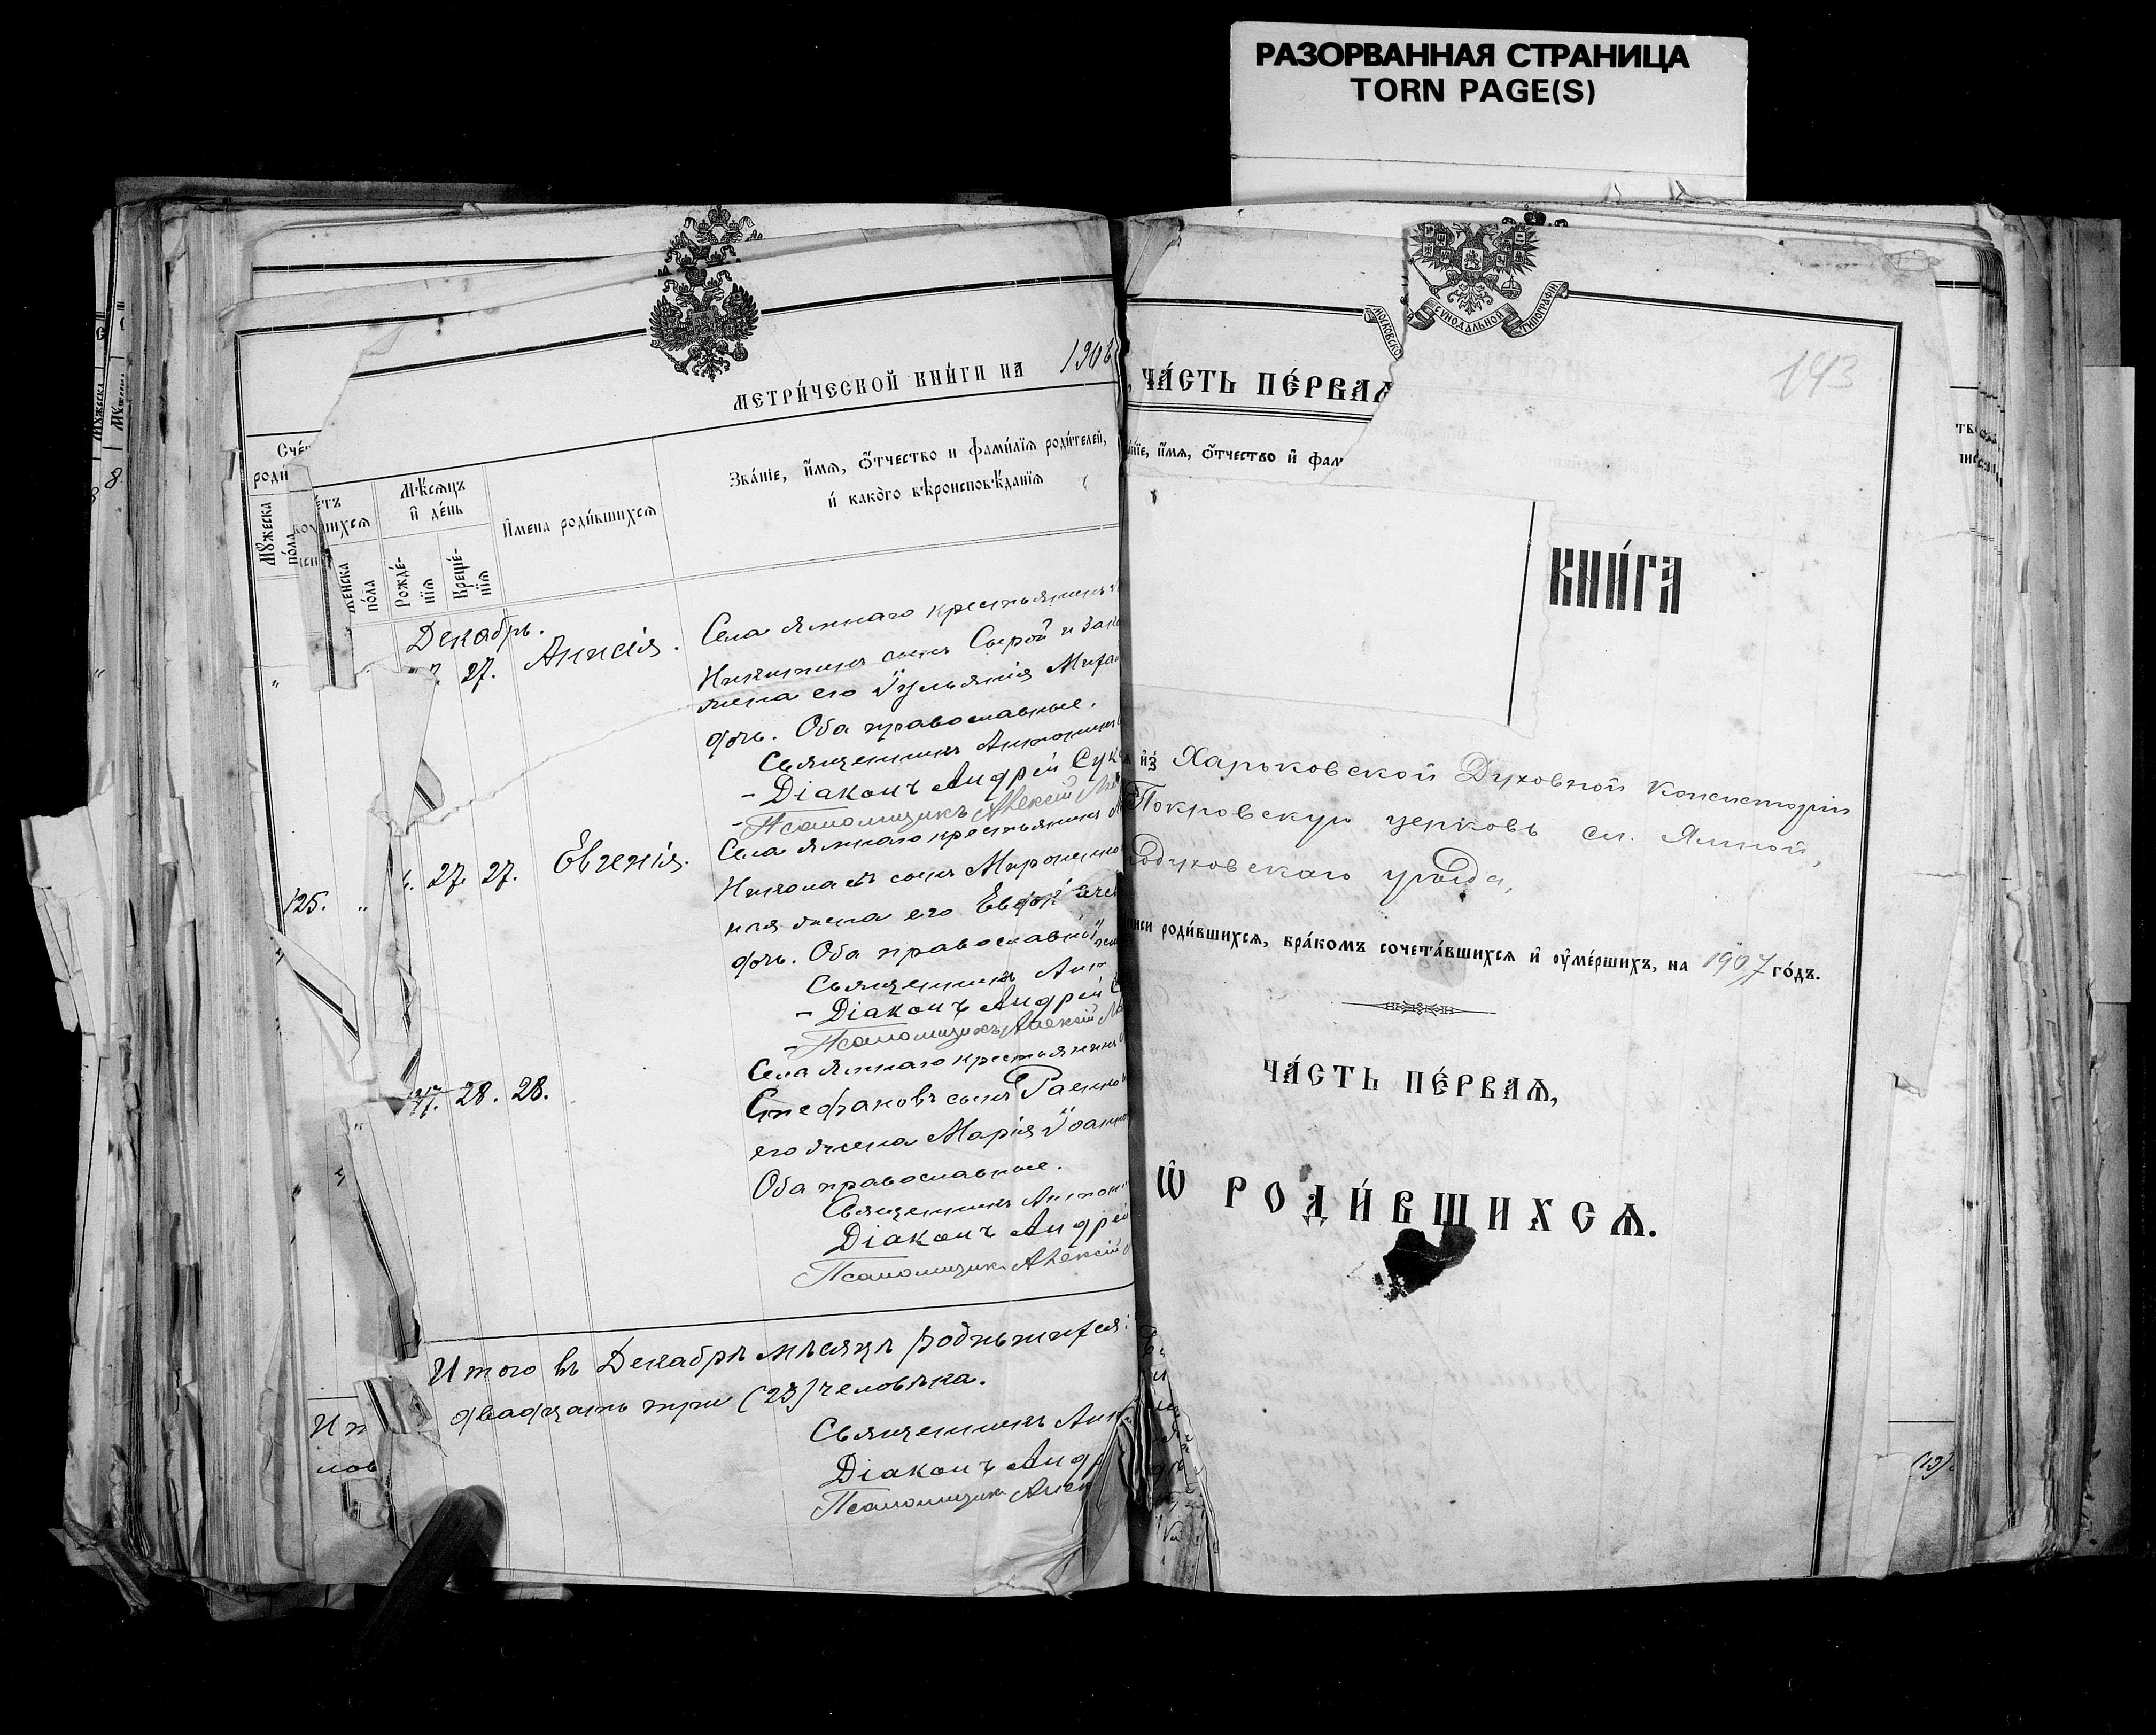 РАЗОРВАННАЯ СТРАНИЦА
TORN PAGE(S)
МЕТРИ́ЧЕСКОЙ КНИ́ГИ НА 1906
Сче́
роди́
Мꙋ́жеска по́ла
Же́нска по́ла
Мѣ́сяцъ и҆ де́нь
Рожде́-
нїѧ
Креще́-
нїѧ
И҆мена роди́вшихсѧ
Зва́нїе, и҆́мѧ, ѻ҆́тчество и фами́лїѧ роди́телей,
и҆ како́гѡ вѣроисповѣ́данїѧ
Декабрь.
27. Анисія.
Села Ямнаго крестьянинъ
Никитинъ сынъ Сырой и зак
жена его Іульянія Миха
дочь. Оба православные.
Священникъ Антонинъ
- Діаконъ Андрей Сук
- Псаломщикъ Алексій
125. „ 27. 27. Евгенія.
Села Ямнаго крестьянинъ
сынъ Мироненко
ная жена его
дочь. Оба православн
Священникъ Ант
- Діаконъ Андрей
- Псаломщикъ Алексій
28. 28.
Села Ямнаго крестьянинъ
Стефановъ сынъ Раенко
его жена Марія Іоанно
Оба православные.
Священникъ Антон
Діаконъ Андрей
Псаломщикъ Алексій
Итого въ Декабрѣ мѣсяцѣ родившихся:
двадцать три (23) человѣка.
Священникъ Ант
Діаконъ Андр
Псаломщикъ Алек
Ит
лов
МОСКОВСКО
СѴНОДАЛЬНОЙ
ТИПОГРАФІИ
193
ЧА́СТЬ ПЕ́РВАѦ
нїе, и҆́мѧ, ѻ҆́тчество и҆ фам
КНИ́ГА
и҆з̾ Харьковской Духовной Консисторіи
Покровскую церковь сл. Ямной,
Богодуховскаго уѣзда,
писи роди́вшихсѧ, бра́комъ сочета́вшихсѧ и҆ ᲂу҆ме́ршихъ, на 1907 го́дъ.
ЧА́СТЬ ПЕ́РВАѦ,
Ѽ РОДИ́ВШИХСѦ.